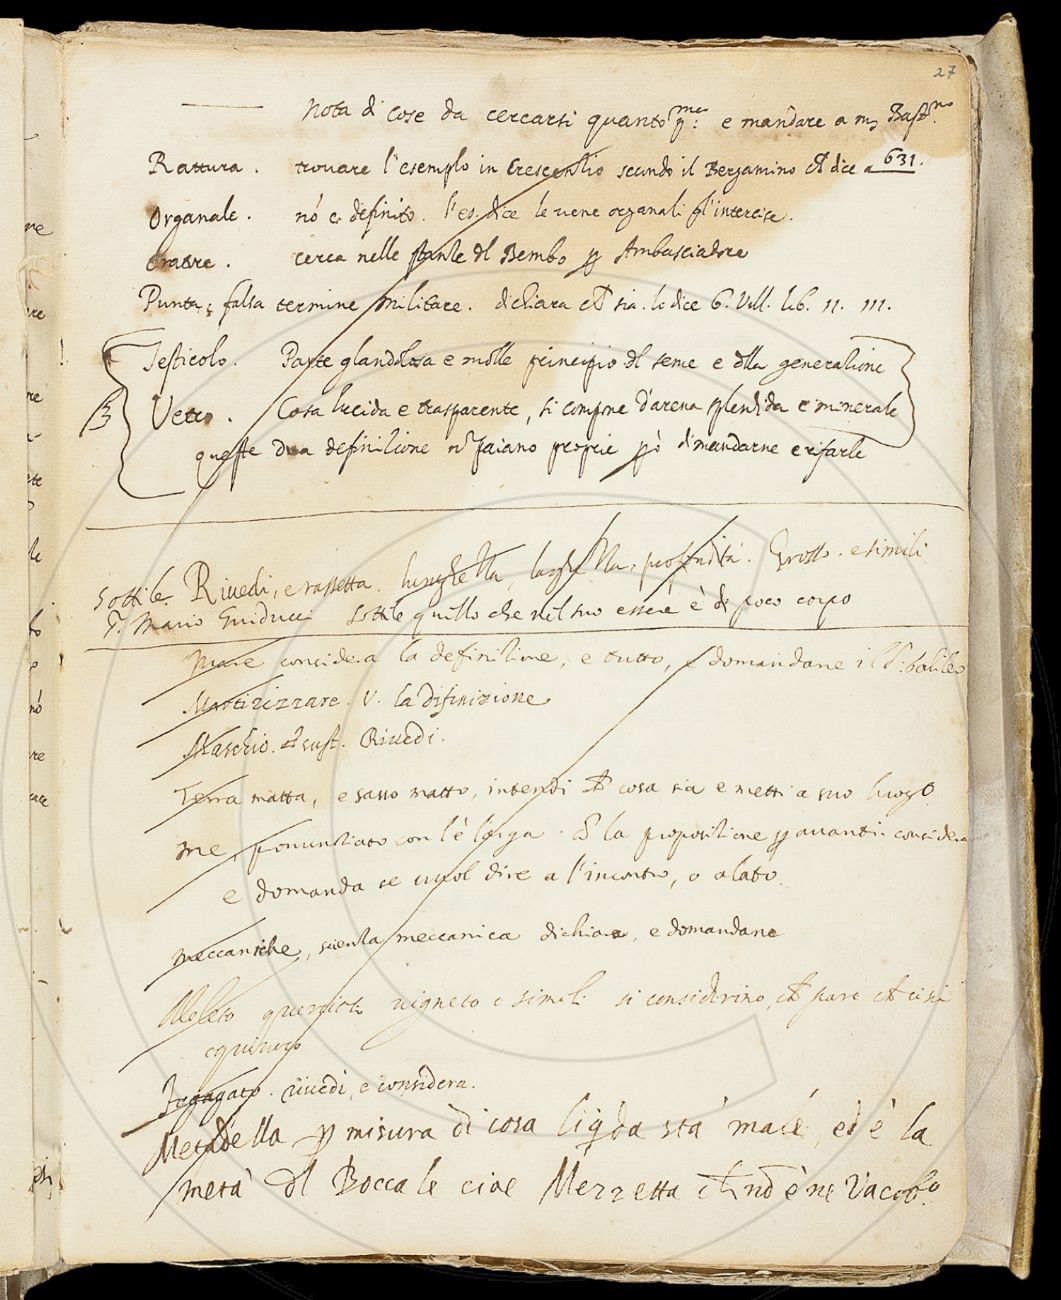 27
Nota di cose da cercarsi quanto p.ª e mandare a m. Bast.no
Rattura . trouare l'esemplo in Crescentio secundo il Bergamino ch dice a 631.
Organale . nó è definito . l'es. dice le uene organali
Oratore . cerca nelle stanze dl Bembo p Ambasciadore
Punta, falsa termine militare . dichiara ch sia . lo dice G. Vill. lib. 11. 111.
Testicolo . Parte glandolosa e molle principio dl seme e dlla generatione
Vetro . Cosa lucida e trasparente, si compone d'arena splendida e minerale
queste dua definitione nō paiano proprie pò dimandarne e rifarle
Sottile. Riuedi, e rassetta. lunghezza, larghezza, profondità. Grosso. e simili
S. Mario Guiducci Sottile quello che nel suo essere è di poco corpo
Mare considera la definitione, e tutto, e domandane il S. Galileo
Martirizzare . V. la Difinizione
Maschio . sust . Riuedi .
Terra matta, e sasso matto, intendi ch cosa sia e metti a suo luogo
me, pronuntiato con l'è larga . la propositione p auanti . considera
e domanda se uuol dire a l'incontro, o alato
meccaniche, scienza meccanica dichiara, e domandane
Meleto querceto uigneto e simili si considerino, ch pare ch ci sia
equiuoco
riuedi, e considera.
Metadella p misura di cosa liq̃da stá male, ed è la
metà dl Boccale cioè Mezzetta ch nō è nel Vacob.o